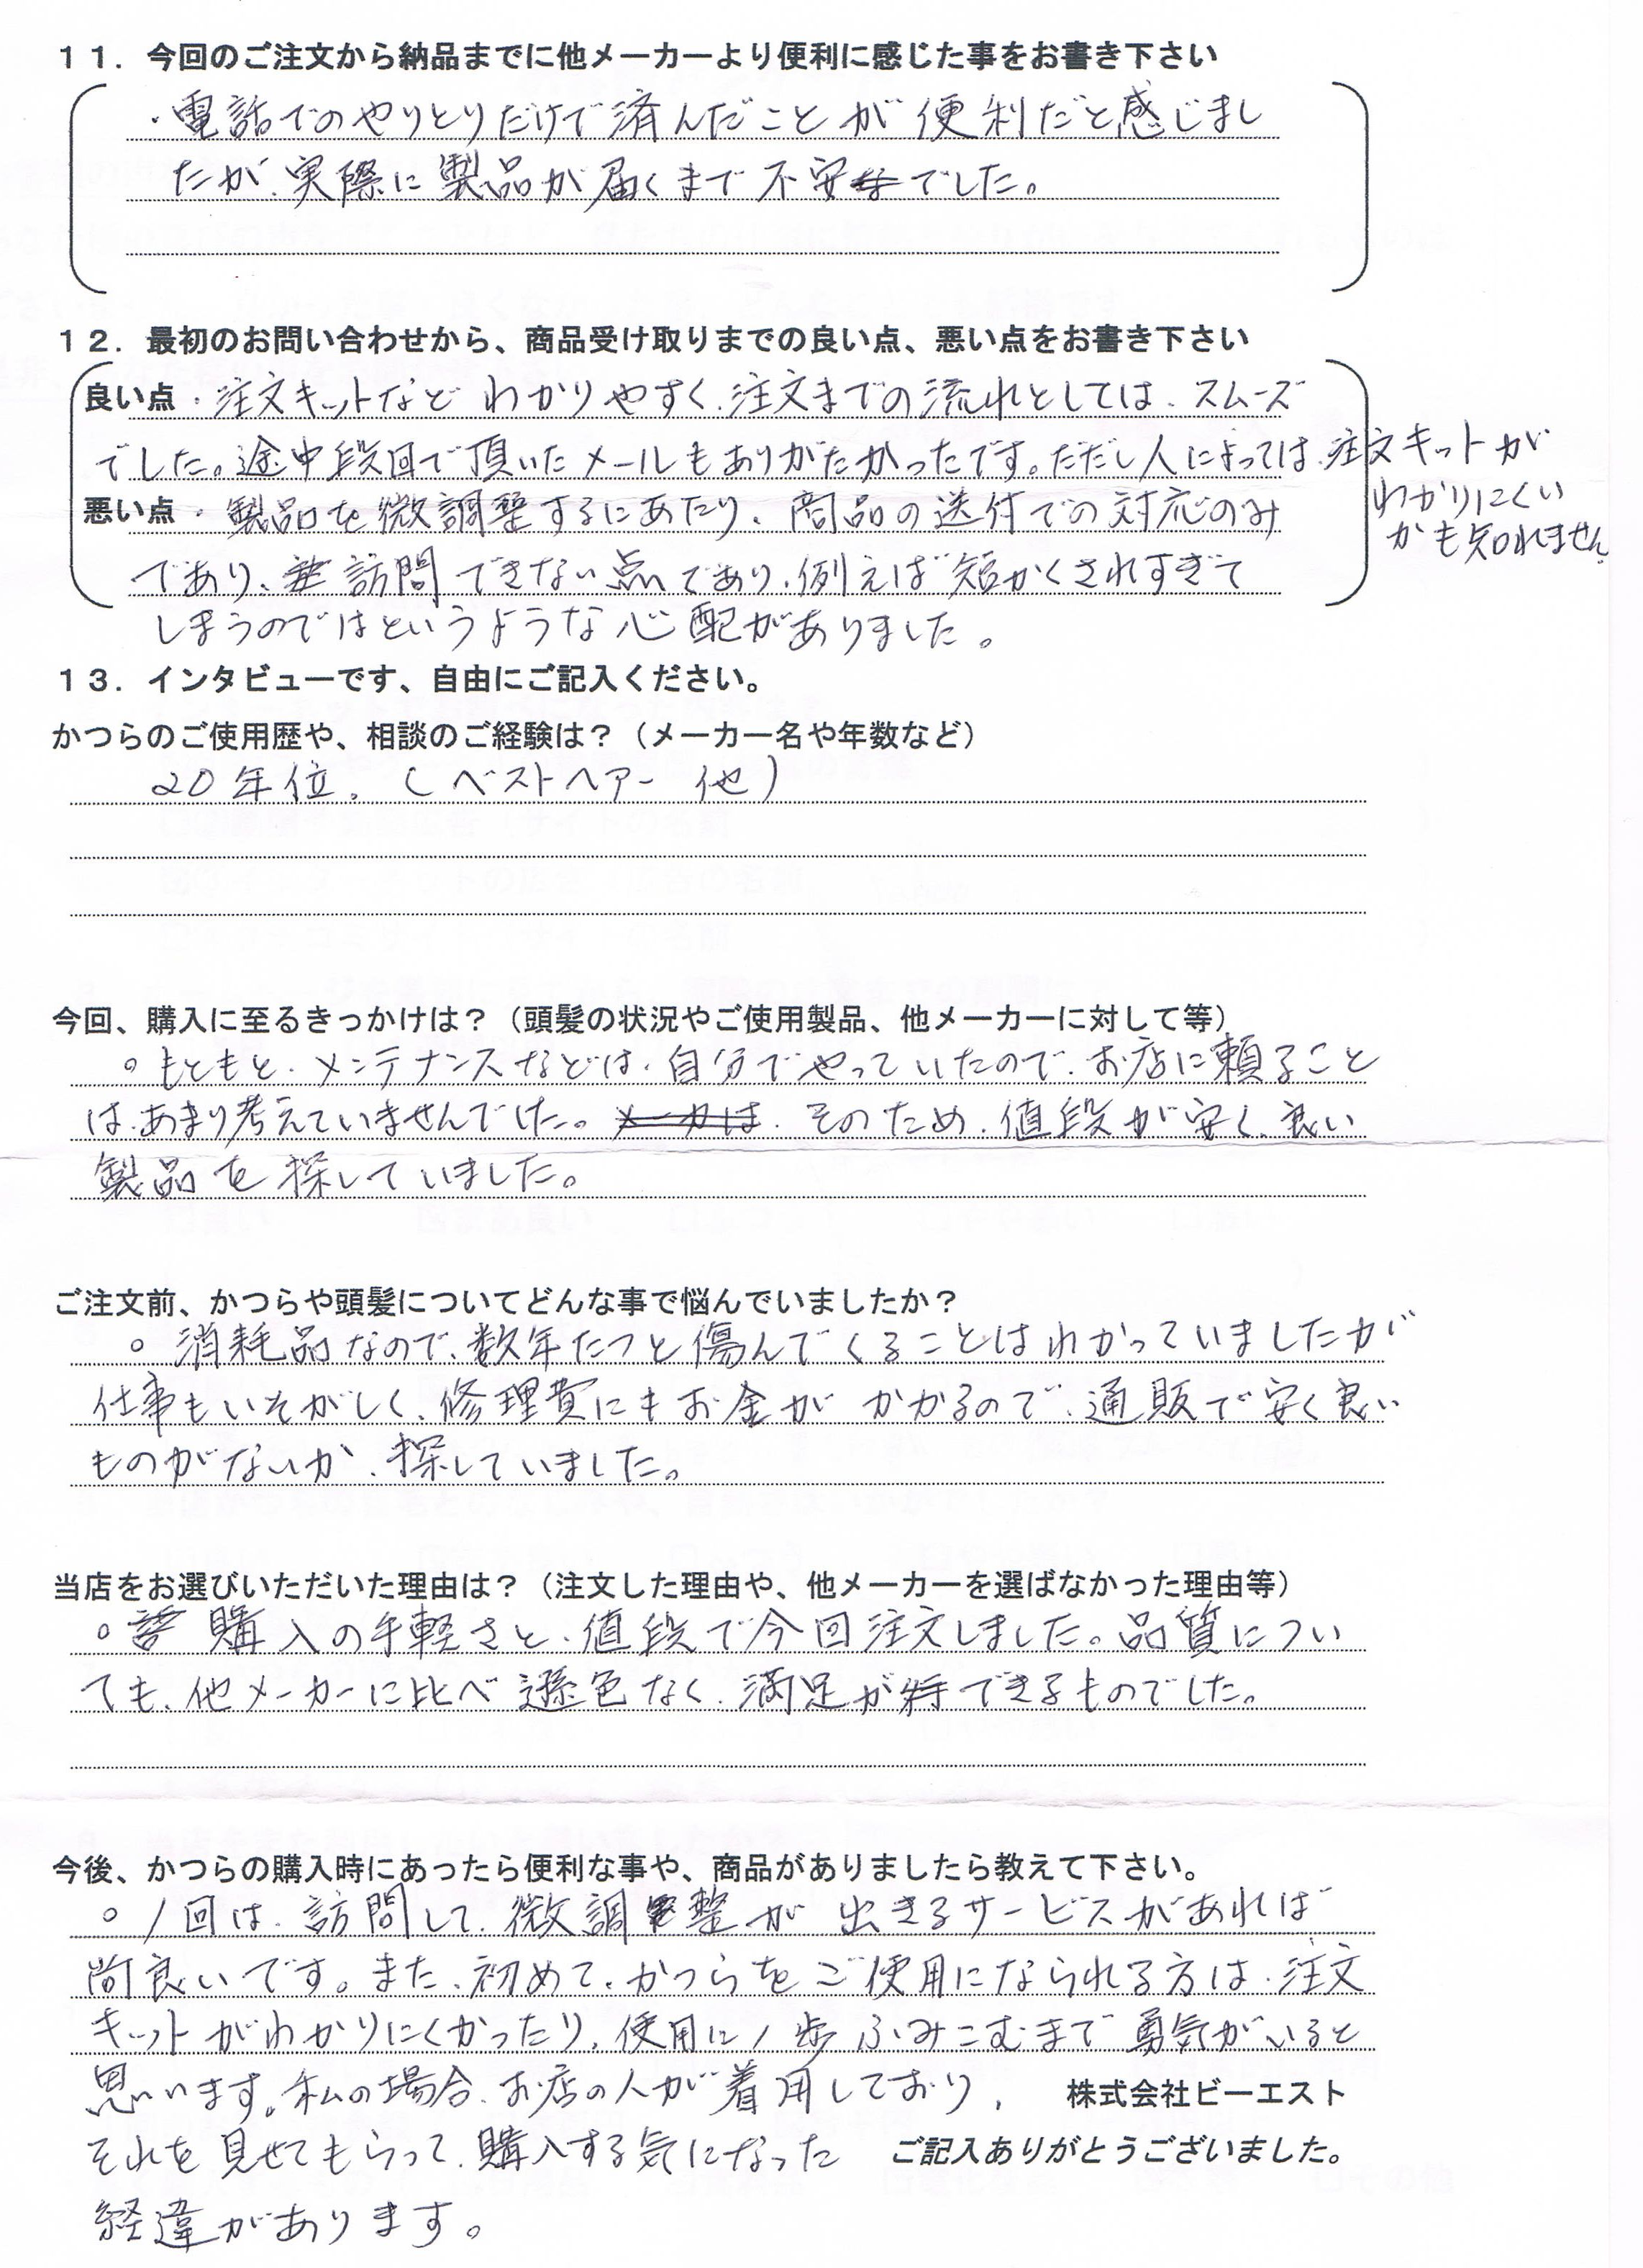 １１．今回のご注文から納品までに他メーカーより便利に感じた事をお書き下さい
・電話でのやりとりだけで済んだことが便利だと感じまし
たが、実際に製品が届くまで不安でした。
１２．最初のお問い合わせから、商品受け取りまでの良い点、悪い点をお書き下さい
良い点・注文キットなどわかりやすく、注文までの流れとしては、スムーズ
でした。途中段回で頂いたメールもありがたかったです。ただし人によっては、注文キットが
わかりにくい
かも知れません。
悪い点・製品を微調整するにあたり、商品の送付での対応のみ
であり、訪問できない点であり、例えば短かくされすぎて
しまうのではというような心配がありました。
１３．インタビューです、自由にご記入ください。
かつらのご使用歴や、相談のご経験は？（メーカー名や年数など）
20年位。（ベストヘアー 他）
今回、購入に至るきっかけは？（頭髪の状況やご使用製品、他メーカーに対して等）
。もともと、メンテナンスなどは、自分でやっていたので、お店に頼ること
は、あまり考えていませんでした。そのため、値段が安く、良い
製品を探していました。
ご注文前、かつらや頭髪についてどんな事で悩んでいましたか？
。消耗品なので、数年たつと傷んでくることはわかっていましたが
仕事もいそがしく、修理費にもお金がかかるので、通販で安く良い
ものがないか、探していました。
当店をお選びいただいた理由は？（注文した理由や、他メーカーを選ばなかった理由等）
。購入の手軽さと、値段で今回注文しました。品質につい
ても、他メーカーに比べ遜色なく、満足ができるものでした。
今後、かつらの購入時にあったら便利な事や、商品がありましたら教えて下さい。
。1回は、訪問して、微調整が出きるサービスがあれば
尚良いです。また、初めて、かつらをご使用になられる方は、注文
キットがわかりにくかったり、使用に1歩ふみこむまで勇気がいると
思います。私の場合、お店の人が着用しており、
株式会社ビーエスト
それを見せてもらって、購入する気になった
ご記入ありがとうございました。
経違があります。